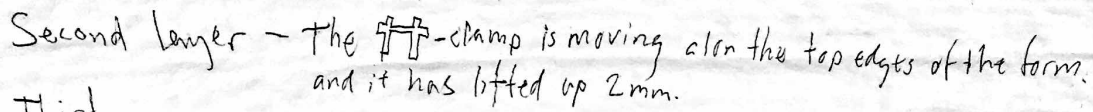 Second layer - The -clamp is moving alon the top edges of the form.
and it has lifted up 2mm.
Third